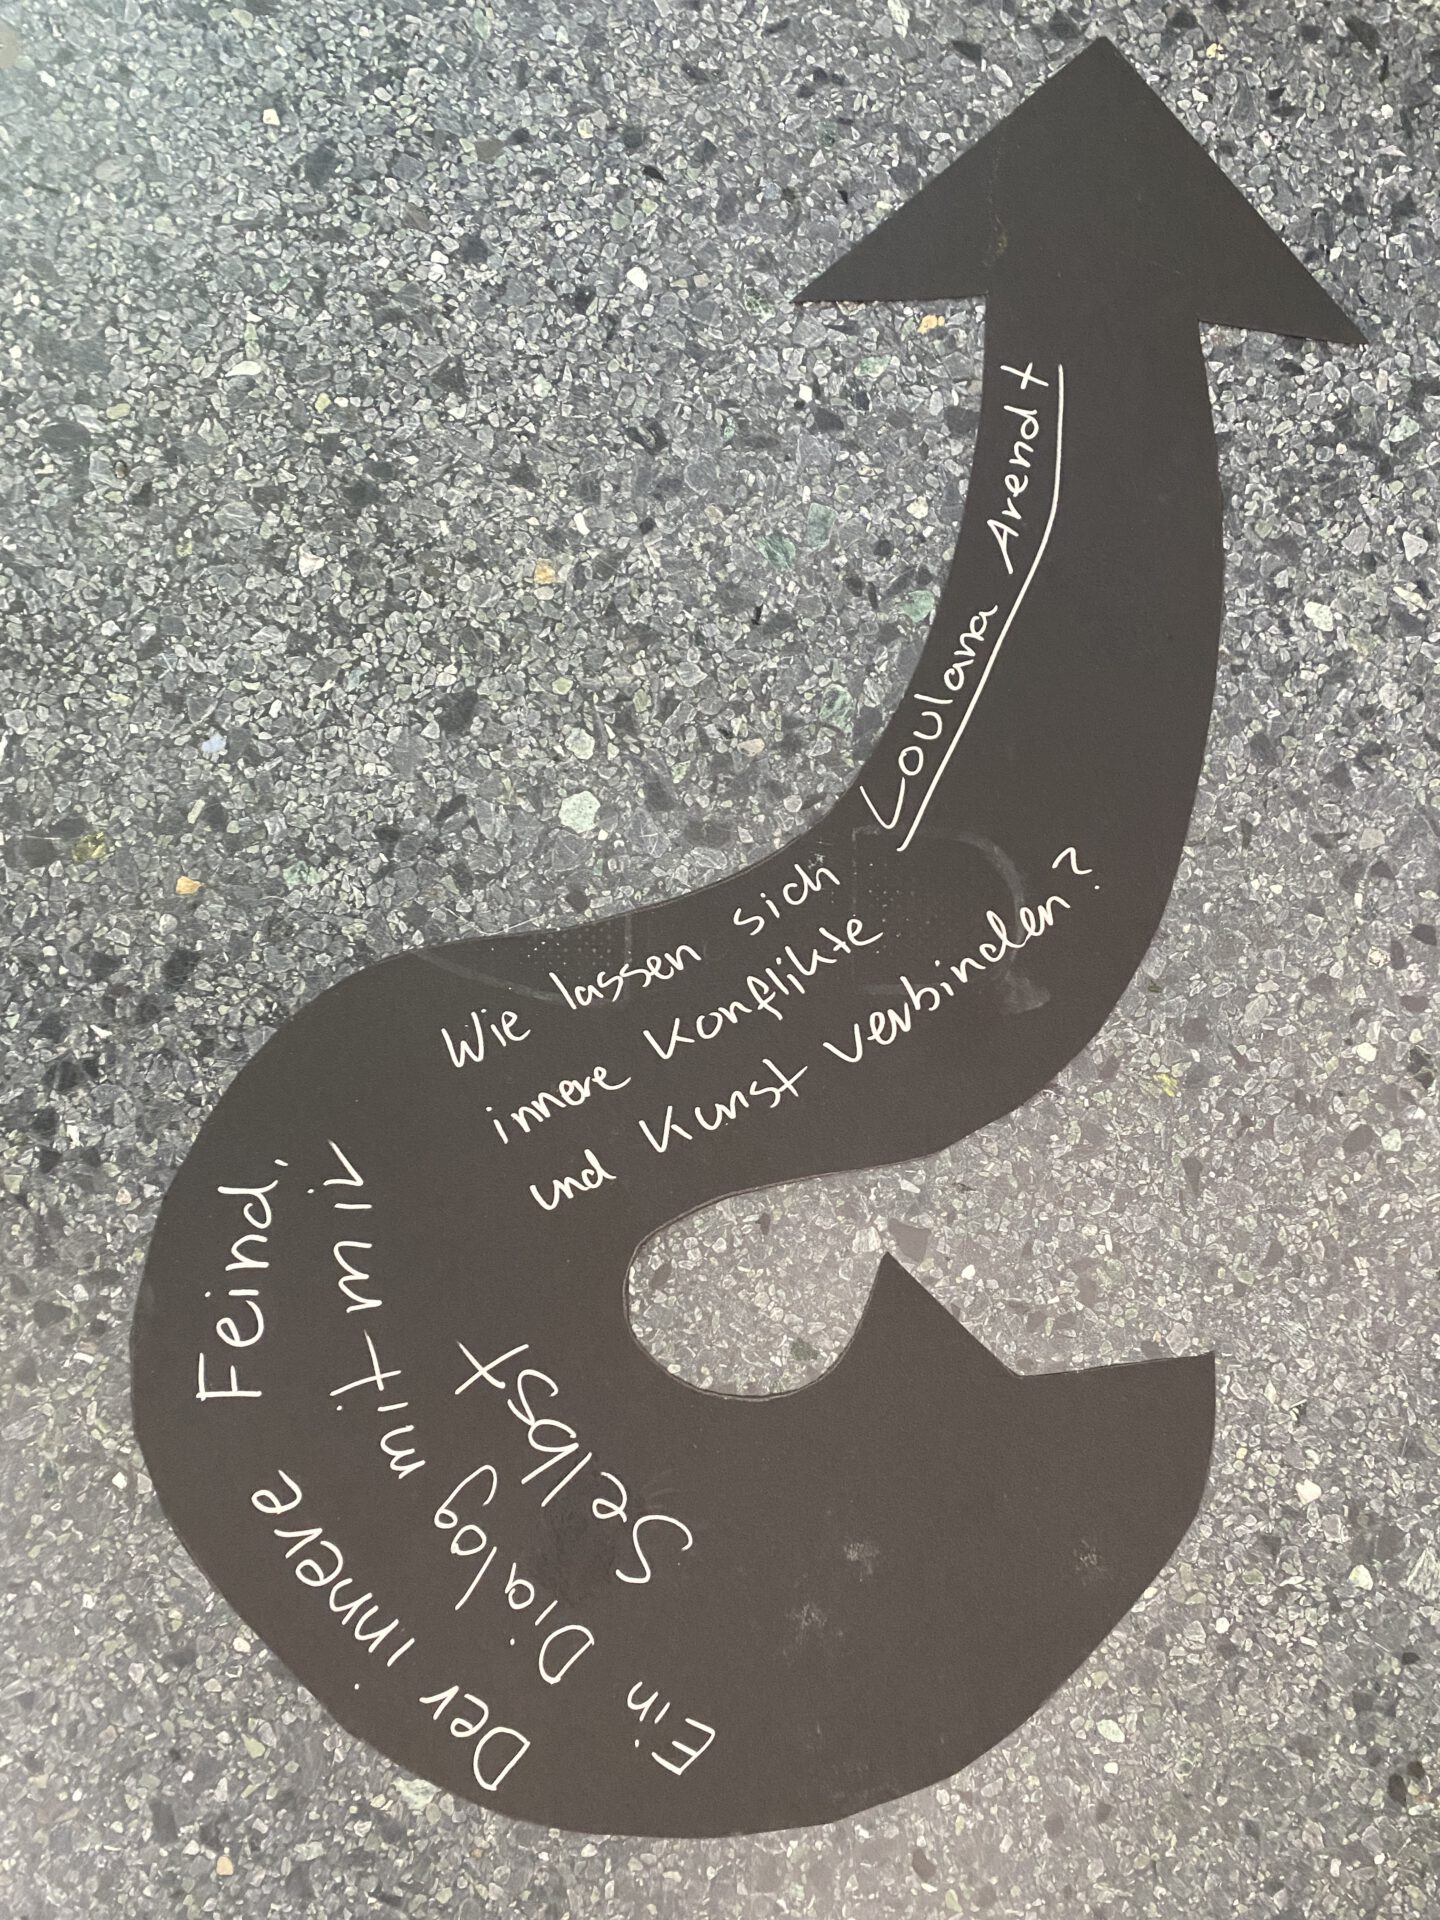 Der innere Feind,
Ein Dialog mit mir
Selbst
Wie lassen sich
innere Konflikte
und Kunst verbinden?
Loulana Arendt